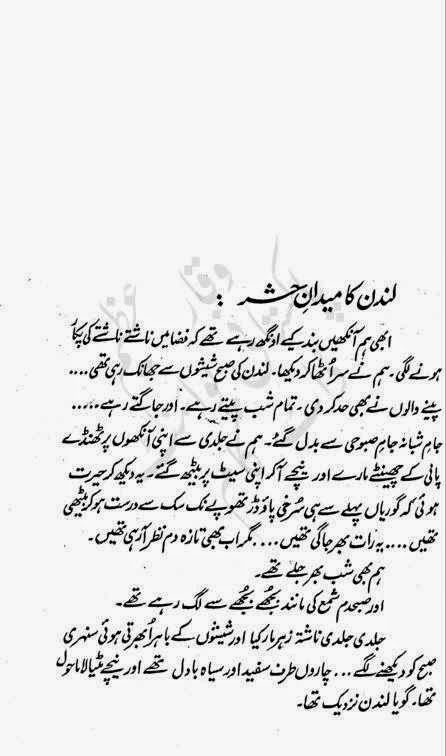 لندن کا میدانِ حشر :
ابھی ہم آنکھیں بند کیے اونگھ رہے تھے کہ فضا میں ناشتے ناشتے کی پکار
ہونے لگی۔ ہم نے سر اُٹھا کر دیکھا۔ لندن کی صبح شیشوں سے جھانک رہی تھی....
پینے والوں نے بھی حد کر دی۔ تمام شب پیتے رہے۔ اور جاگتے رہے......
جامِ شبانہ جامِ صبوحی سے بدل گئے۔ ہم نے جلدی سے اپنی آنکھوں پر ٹھنڈے
پانی کے چھینٹے مارے اور نیچے آ کر اپنی سیٹ پر بیٹھ گئے۔ یہ دیکھ کر حیرت
ہوئی کہ گوریاں پہلے سے ہی سُرخی پاؤڈر تھوپے نک سک سے درست ہو کر بیٹھی
تھیں.... یہ رات بھر جاگی تھیں.... مگر اب بھی تازہ دم نظر آ رہی تھیں۔
ہم بھی شب بھر جلے تھے۔
اور صبحدم شمع کی مانند بجُھے بجُھے سے لگ رہے تھے۔
جلدی جلدی ناشتہ زہر مار کیا اور شیشوں کے باہر اُبھرتی ہوئی سنہری
صبح کو دیکھنے لگے... چاروں طرف سفید اور سیاہ بادل تھے اور نیچے مٹیالا ماحول
تھا۔ گویا لندن نزدیک تھا۔